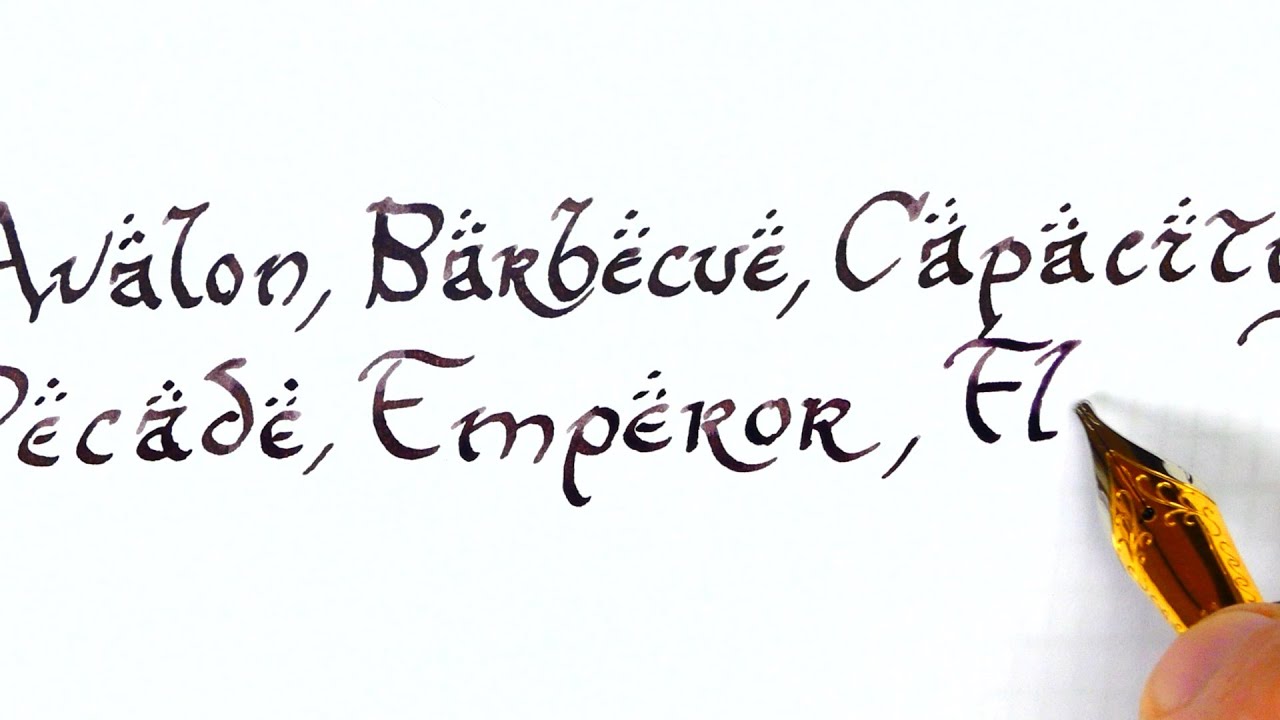 Avalon, Barbecue, Capacity
Decade, Emperor, Fl